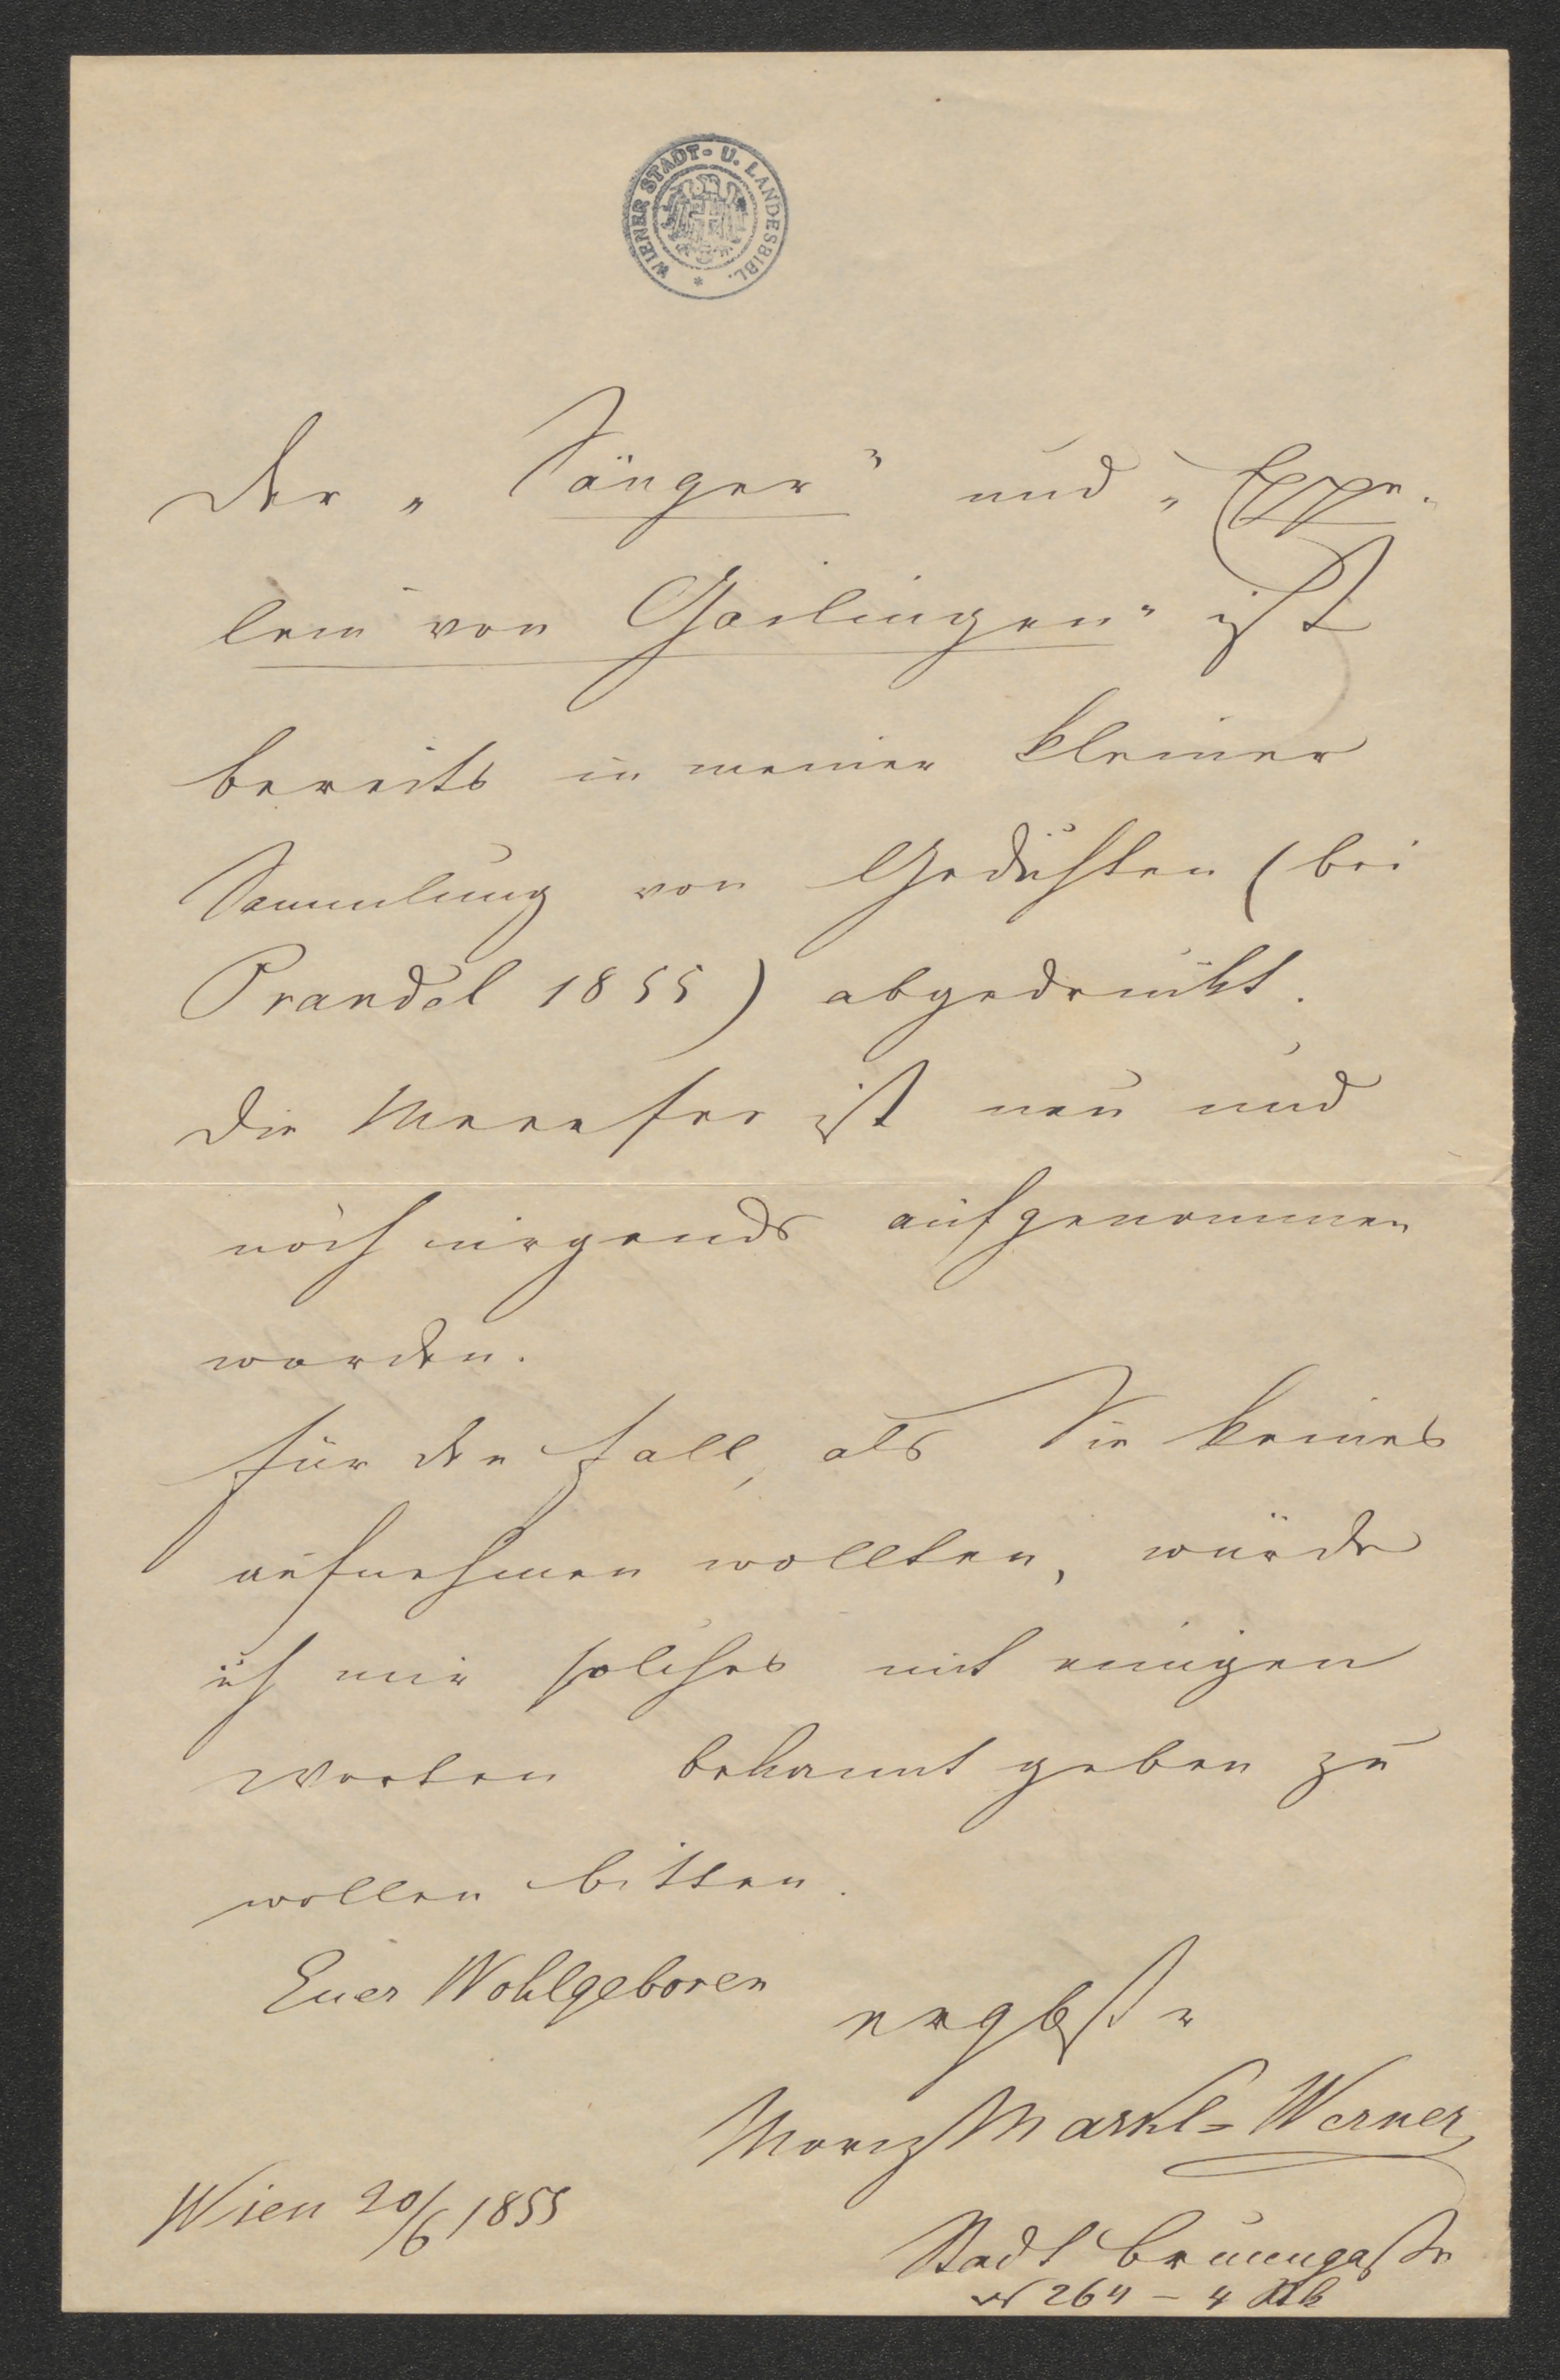 WIENER STADT- U. LANDESBIBL. *
Der „Sänger" und „Eppe-
lein von Gailingen" ist
bereits in meiner kleinen
Sammlung von Gedichten (bei
Prandel 1855) abgedruckt.
Die Meerefee ist neu und
noch nirgends aufgenommen
worden.
Für den Fall, als Sie keines
aufnehmen wollten, würde
ich mir solches mit einigen
Worten bekannt geben zu
wollen bitten.
Euer Wohlgeboren
ergbstr
Moriz Markl-Werner
Wien 20/6 1855
Stadt
N 264 - 4 Stk